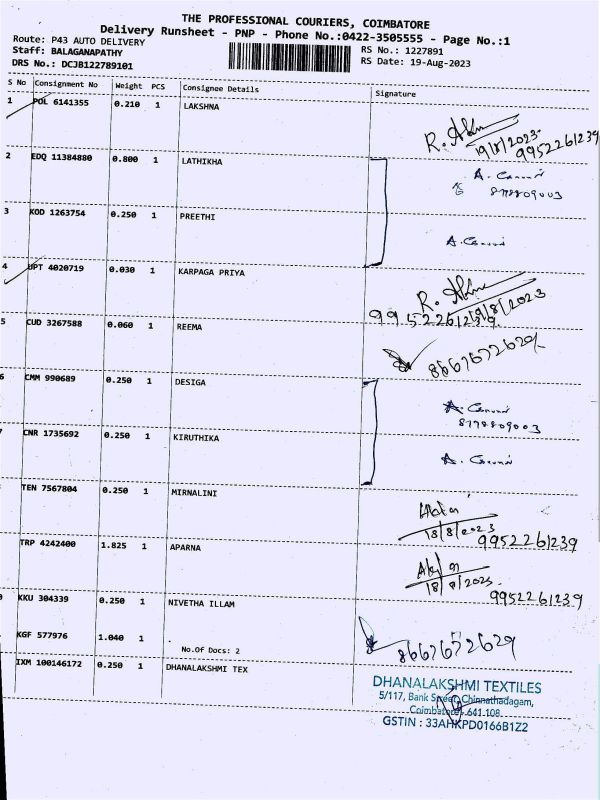 THE PROFESSIONAL COURIERS, COIMBATORE
Delivery Runsheet - PNP - Phone No.:0422-3505555 - Page No.:1
Route: P43 AUTO DELIVERY
RS No.: 1227891
Staff: BALAGANAPATHY
RS Date: 19-Aug-2023
DRS No.: DCJB122789101
S No Consignment No Weight PCS Consignee Details Signature
1 POL 6141355 0.210 1 LAKSHNA
19/8/2023
9952261239
2 EDQ 11384880 0.800 1 LATHIKHA
8778809003
3 KOD 1263754 0.250 1 PREETHI
4 UPT 4020719 0.030 1 KARPAGA PRIYA
19/8/2023
9952261239
5 CUD 3267588 0.060 1 REEMA
8667672629
6 CMM 990689 0.250 1 DESIGA
8778809003
CNR 1735692 0.250 1 KIRUTHIKA
TEN 7567804 0.250 1 MIRNALINI
18/8/2023
9952261239
TRP 4242400 1.825 1 APARNA
9952261239
KKU 304339 0.250 1 NIVETHA ILLAM
KGF 577976 1.040 1 .
8667672629
No.Of Docs: 2
IXM 100146172 0.250 1 DHANALAKSHMI TEX
DHANALAKSHMI TEXTILES
5/117, Bank Street, Chinnathadagam,
Coimbatore - 641 108.
GSTIN : 33AHKPD0166B1Z2